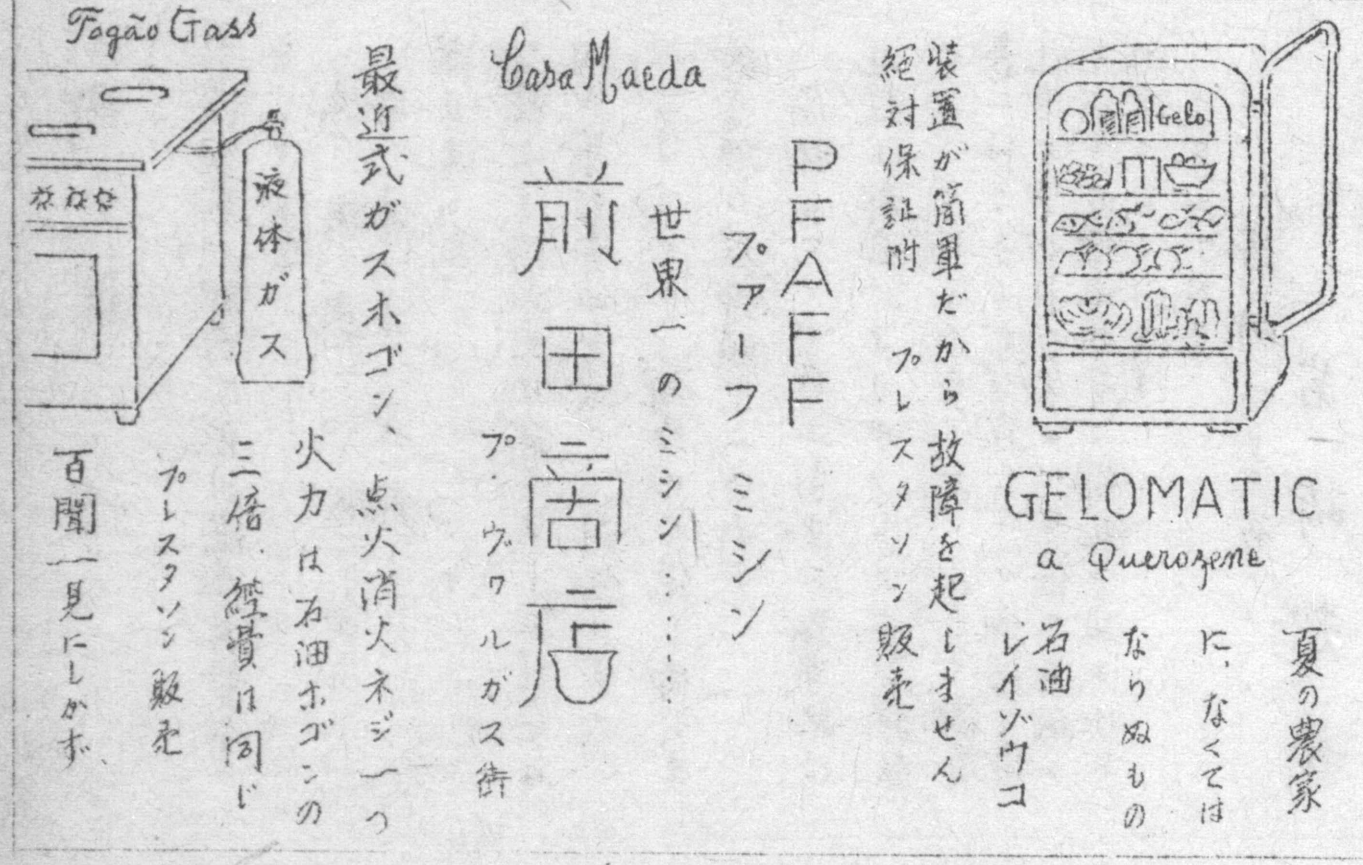 GELOMATIC
a Querozene
Gelo
夏の農家
に、なくては
ならぬもの
石油
レイゾウコ
装置が簡単だから故障を起しません
絶対保証附 プレスタソン販売
PFAFF
プァーフ ミシン
世界一のミシン……
Casa Maeda
前田商店
プ.ヴワルガス街
最近式ガスホゴン、点火消火ネジ一つ
火力は石油ホゴンの
三倍、経費は同じ
プレスタソン販売
百聞一見にしかず、
Fogão Gass
液体ガス